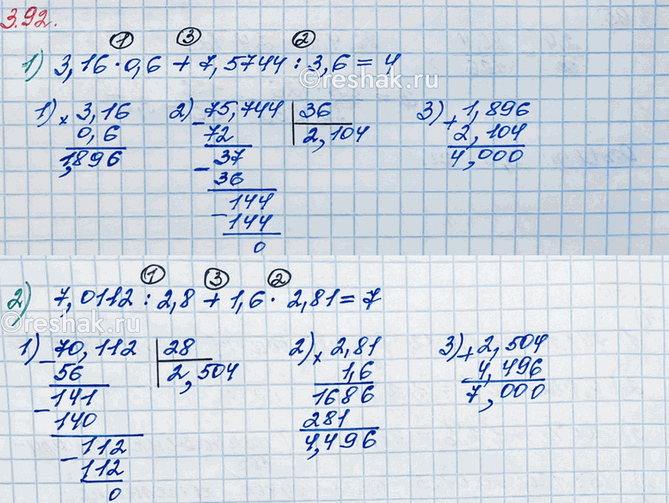 3.92.
① ③ ②
1) 3,16 · 0,6 + 7,5744 : 3,6 = 4
reshak.ru
1) × 3,16 2) - 75,744 | 36 3) + 1,896
0,6 72 2,104 2,104
1,896 - 37 4,000
36
- 144
144
0
① ③ ②
2) 7,0112 : 2,8 + 1,6 · 2,81 = 7
reshak.ru
1) - 70,112 | 28 2) × 2,81 3) + 2,504
56 2,504 1,6 4,496
- 141 1686 7,000
140 281
- 112 4,496
112
0